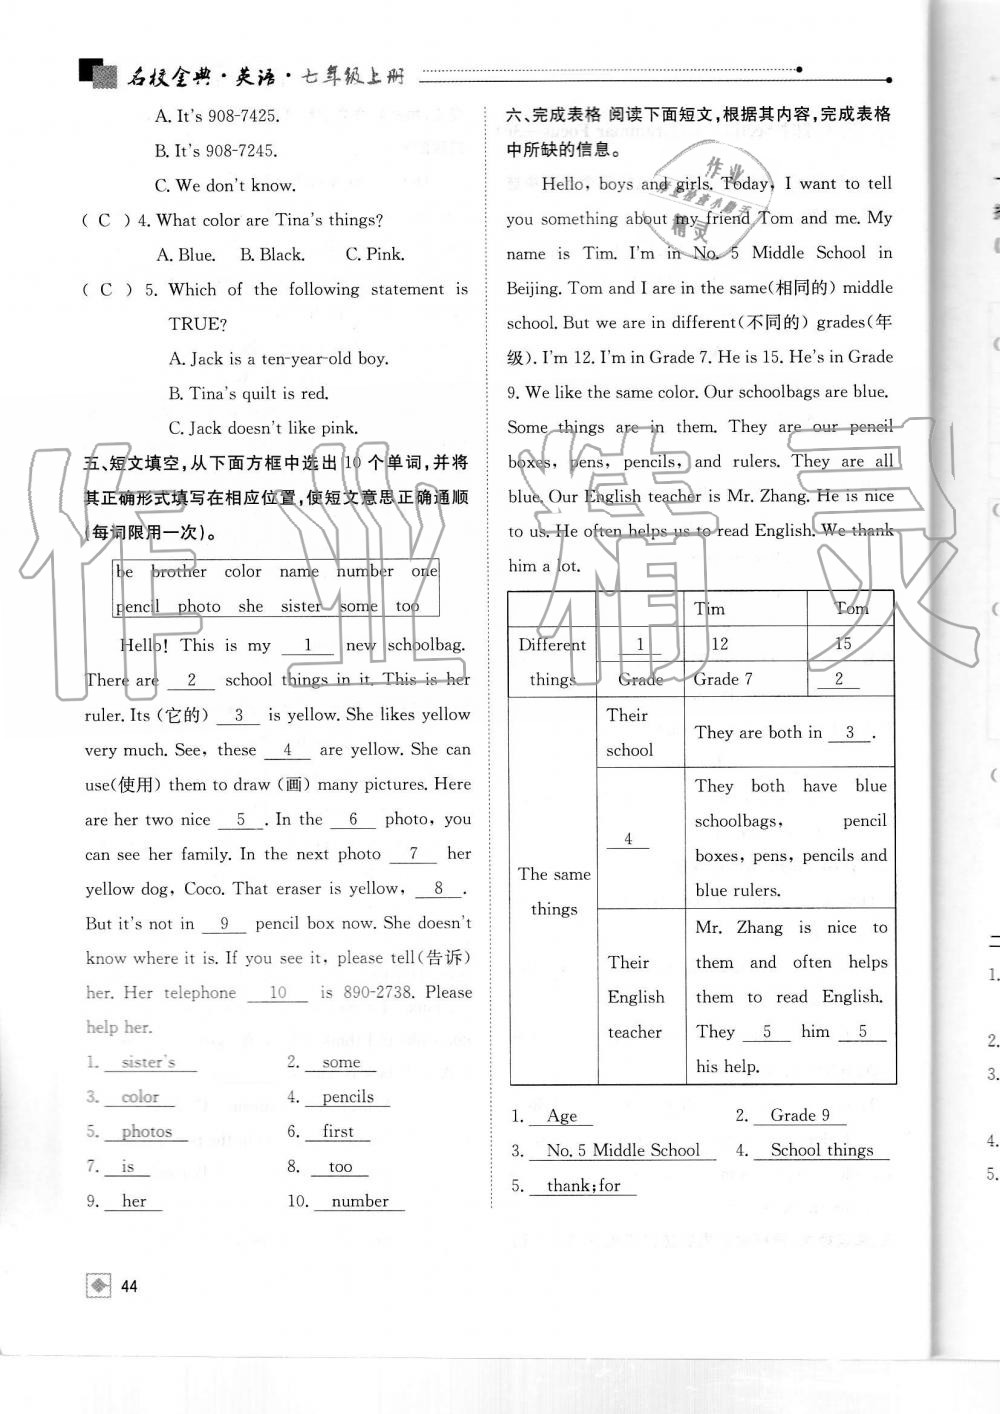 名校金典·英语·七年级上册
A. It's 908-7425.
B. It's 908-7245.
C. We don't know.
( C ) 4. What color are Tina's things?
A. Blue. B. Black. C. Pink.
( C ) 5. Which of the following statement is
TRUE?
A. Jack is a ten-year-old boy.
B. Tina's quilt is red.
C. Jack doesn't like pink.
五、短文填空,从下面方框中选出 10 个单词,并将
其正确形式填写在相应位置,使短文意思正确通顺
(每词限用一次)。
be brother color name number one
pencil photo she sister some too
Hello! This is my 1 new schoolbag.
There are 2 school things in it. This is her
ruler. Its (它的) 3 is yellow. She likes yellow
very much. See, these 4 are yellow. She can
use(使用) them to draw (画) many pictures. Here
are her two nice 5 . In the 6 photo, you
can see her family. In the next photo 7 her
yellow dog, Coco. That eraser is yellow, 8 .
But it's not in 9 pencil box now. She doesn't
know where it is. If you see it, please tell(告诉)
her. Her telephone 10 is 890-2738. Please
help her.
1. sister's 2. some
3. color 4. pencils
5. photos 6. first
7. is 8. too
9. her 10. number
44
六、完成表格 阅读下面短文,根据其内容,完成表格
中所缺的信息。
Hello, boys and girls. Today, I want to tell
you something about my friend Tom and me. My
name is Tim. I'm in No. 5 Middle School in
Beijing. Tom and I are in the same(相同的) middle
school. But we are in different(不同的) grades(年
级). I'm 12. I'm in Grade 7. He is 15. He's in Grade
9. We like the same color. Our schoolbags are blue.
Some things are in them. They are our pencil
boxes, pens, pencils, and rulers. They are all
blue. Our English teacher is Mr. Zhang. He is nice
to us. He often helps us to read English. We thank
him a lot.
Tim Tom
Different things 1 12 15
Grade Grade 7 2
The same things Their school They are both in 3 .
4 They both have blue
schoolbags, pencil
boxes, pens, pencils and
blue rulers.
Their English teacher Mr. Zhang is nice to
them and often helps
them to read English.
They 5 him 5
his help.
1. Age 2. Grade 9
3. No. 5 Middle School 4. School things
5. thank;for
作业精灵
作业
精灵